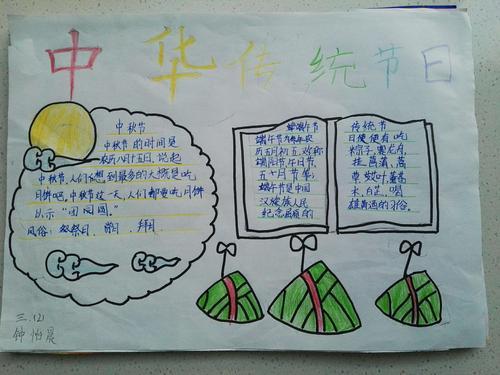 中华传统节日
中秋节
中秋节的时间是
农历八月十五日,说起
中秋节,人们想到最多的大概是吃
月饼吧。中秋节这一天,人们都要吃月饼
以示“团圆”。
风俗:祭月、赏月、拜月
端午节
端午节为每年农
历五月初五,又称
端阳节、午日节、
五月节等;
端午节是中国
汉族人民
纪念屈原的
传统节
日,便有吃
粽子,赛龙舟,
挂菖蒲、蒿
草、艾叶,薰苍
术、白芷,喝
雄黄酒的习俗。
三.(2)
钟怡晨